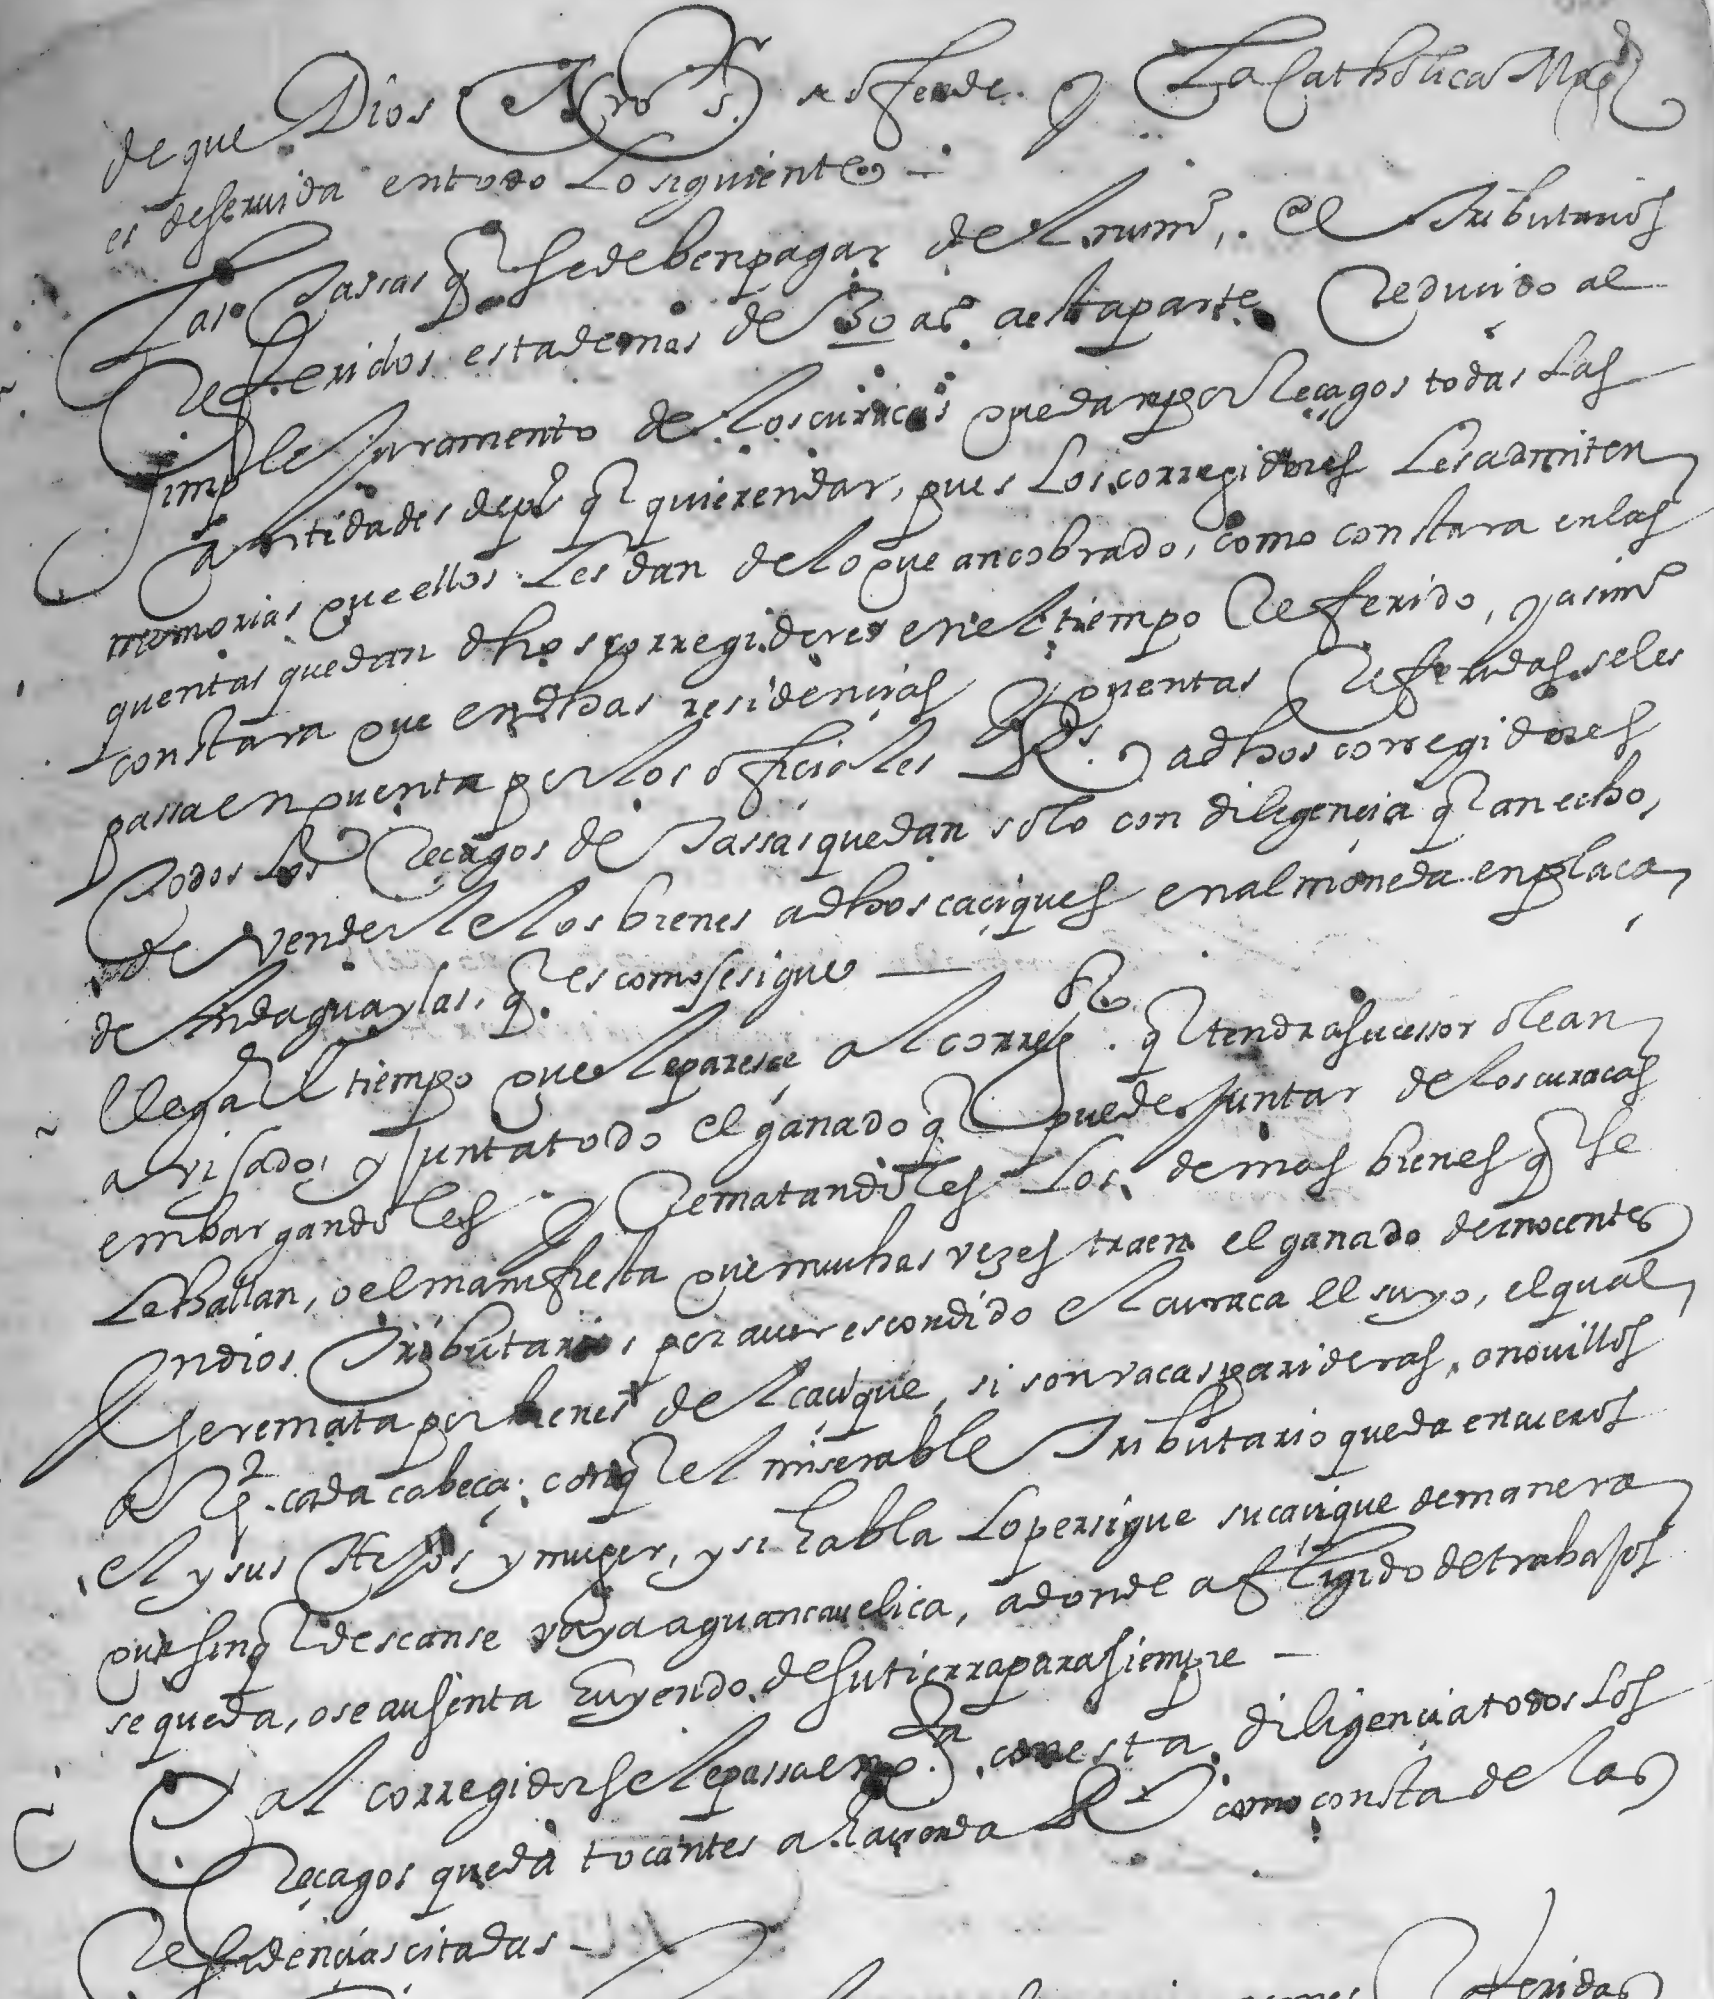 de que Dios Nro S. se ofende. y La Catholica Magd
es deseruida en todo Lo siguiente —
Las Tassas q se deben pagar del num, de Tributarios
Referidos esta demas de 30 as a esta parte Reduuido al
simple Juramento de los curacas que dan por Reçagos todas Las
Cantidades de ps q quieren dar, pues Los corregidores Les admiten
memorias que ellos Les dan de lo que an cobrado, como constara en las
quentas que dan dhos corregidores en el tiempo Referido, y asimo
constara que en dhas residençias y quentas Referidas se les
passa en quenta por los officiales Rs. a dhos corregidores
Todos Los Reçagos de Tassas que dan solo con diligençia q an echo,
de Venderle los bienes a dhos caçiques en almoneda en plaça
de Andaguaylas, q es como se sigue —
llega el tiempo que le paresçe al corregor. q tendra sucessor o le an
avisado, y Junta todo el ganado q puede Juntar de los curacas
embargandoles y Rematandoles Los demas bienes q se
Les hallan, o el manifiesta que muchas vezes traen el ganado de inocentes
Yndios Tributarios por auer escondido el curaca el suyo, el qual
se remata por bienes del caçique, si son vacas parideras, o nouillos
a 2 ps. cada cabeça; con q el miserable Tributario queda en cueros
el y sus Hijos y muger, y si habla Lo persigue su caçique de manera
que sin q descanse vaya a guancauelica, adonde afligido de trabajos
se queda, o se ausenta huyendo de su tierra para siempre —
Y al corregidor se le passa en qta. con esta diligençia todos Los
Reçagos que da tocantes a la haçienda Rl como consta de las
Residençias citadas —
Referidas